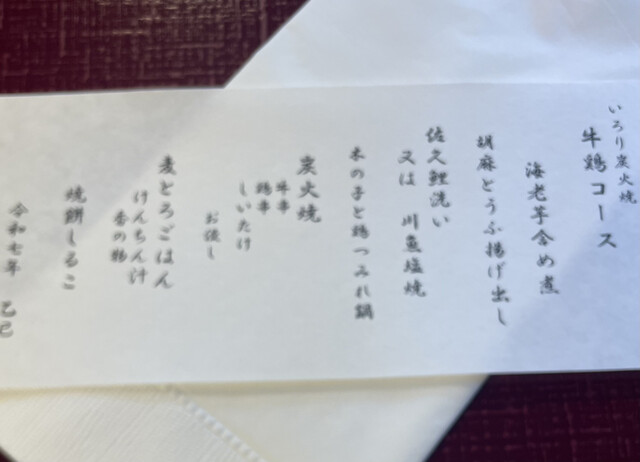 いろり炭火焼
牛鶏コース
海老芋含め煮
胡麻とうふ揚げ出し
佐久鯉洗い
又は 川魚塩焼
木の子と鶏つみれ鍋
炭火焼
牛串
鶏串
しいたけ
お後し
麦とろごはん
けんちん汁
香の物
焼餅しるこ
令和七年 乙巳